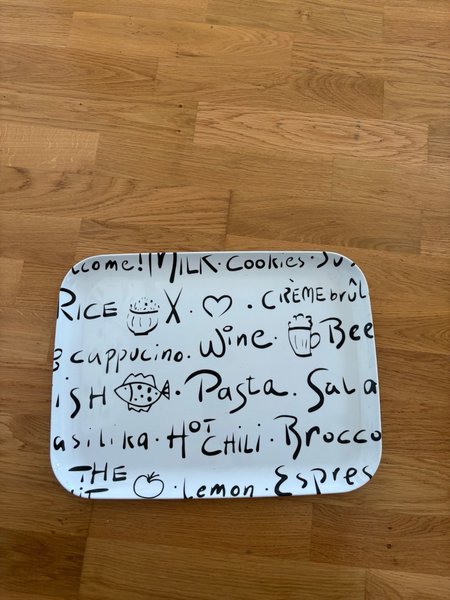 lcome! MILK · Cookies · Su
RICE · CRÈME brûl
cappucino. Wine. Bee
iSH · Pasta. Sala
asilika · HOT CHiLi · Brocco
THE · Lemon · Espres